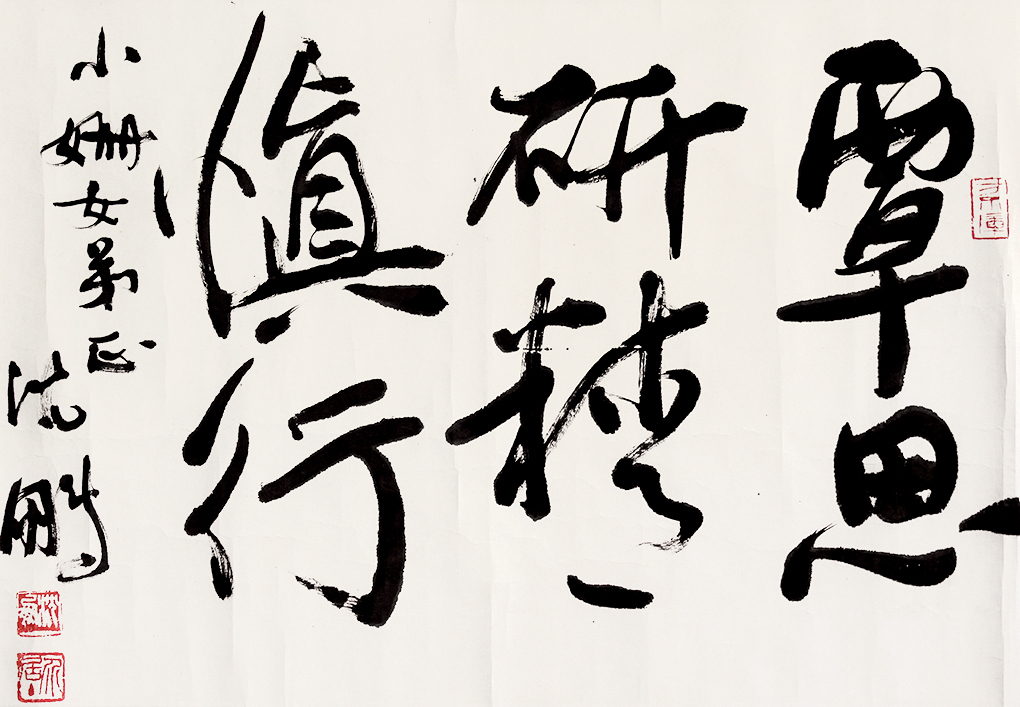 覃思
研精
慎行
小姗女弟正
沈鹏